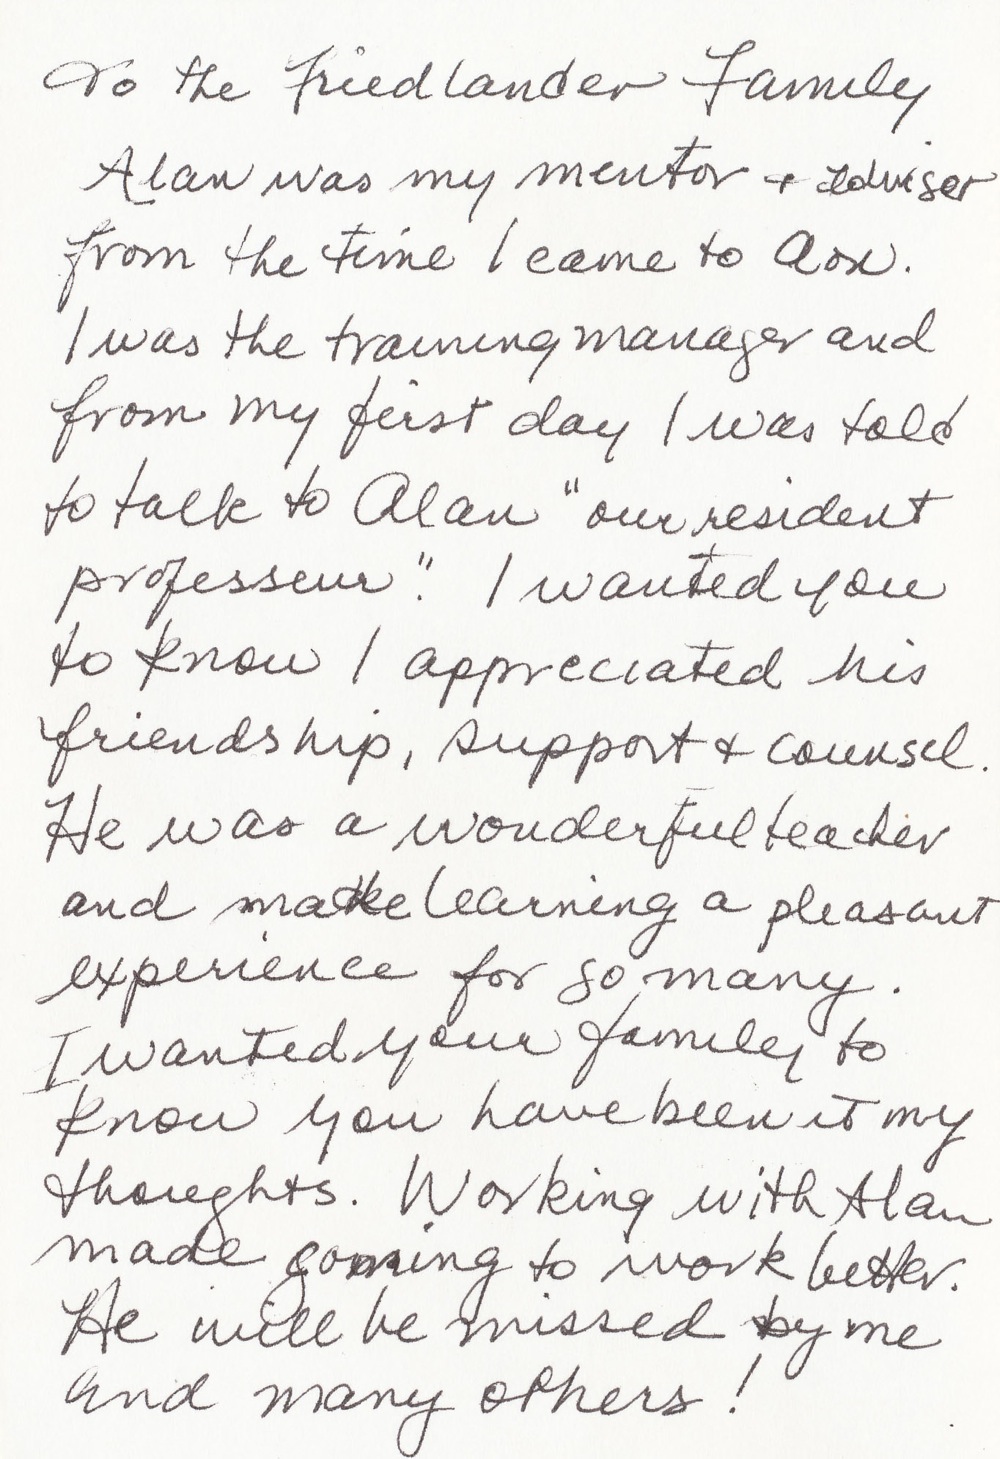 To the Friedlander Family
Alan was my mentor + adviser
from the time I came to Aon.
I was the training manager and
from my first day I was told
to talk to Alan "our resident
professeur". I wanted you
to know I appreciated his
friendship, support + counsel.
He was a wonderful teacher
and make learning a pleasant
experience for so many.
I wanted your family to
know you have been it my
thoughts. Working with Alan
made coming to work better.
He will be missed by me
and many others!